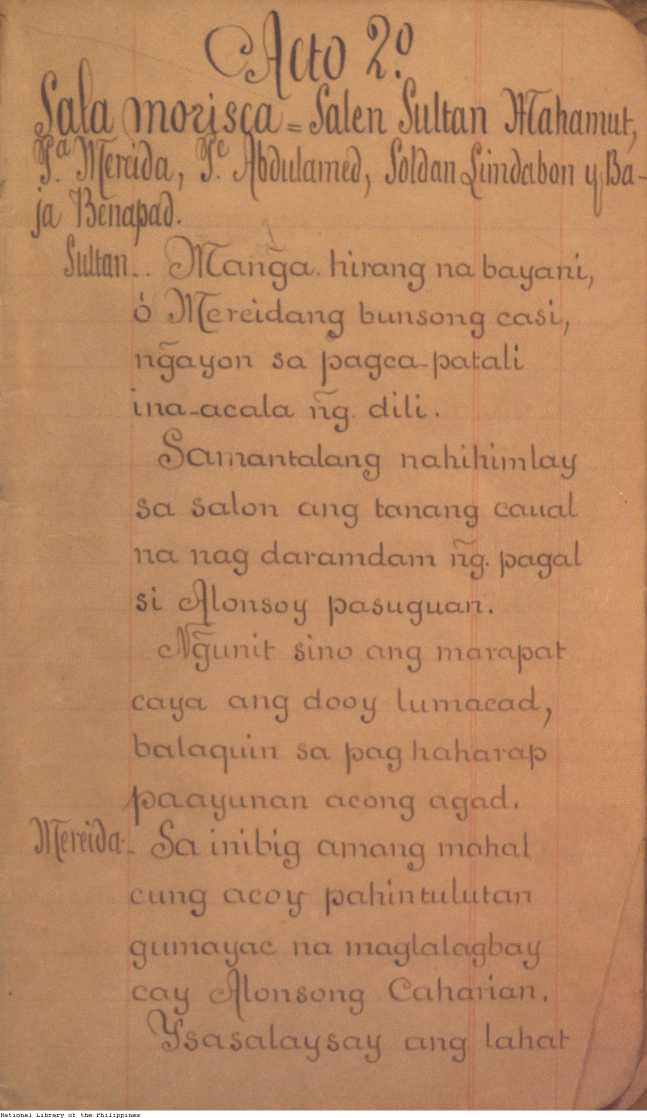 Acto 2.º
Sala morisca = Salen Sultan Mahamut,
P.ª Mereida, P.e Abdulamed, Soldan Lindabon y Ba-
ja Benapad.
Sultan.. Mang̃a. hirang na bayani,
ó Mereidang bunsong casi,
ng̃ayon sa pagca-patali
ina-acala ñg. dili.
Samantalang nahihimlay
sa salon ang tanang caual
na nag daramdam ñg. pagal
si Alonsoy pasuguan.
Ng̃unit sino ang marapat
caya ang dooy lumacad,
balaquin sa pag haharap
paayunan acong agad.
Mereida.- Sa inibig amang mahal
cung acoy pahintulutan
gumayac na maglalagbay
cay Alonsong Caharian.
Ysasalaysay ang lahat
National Library of the Philippines